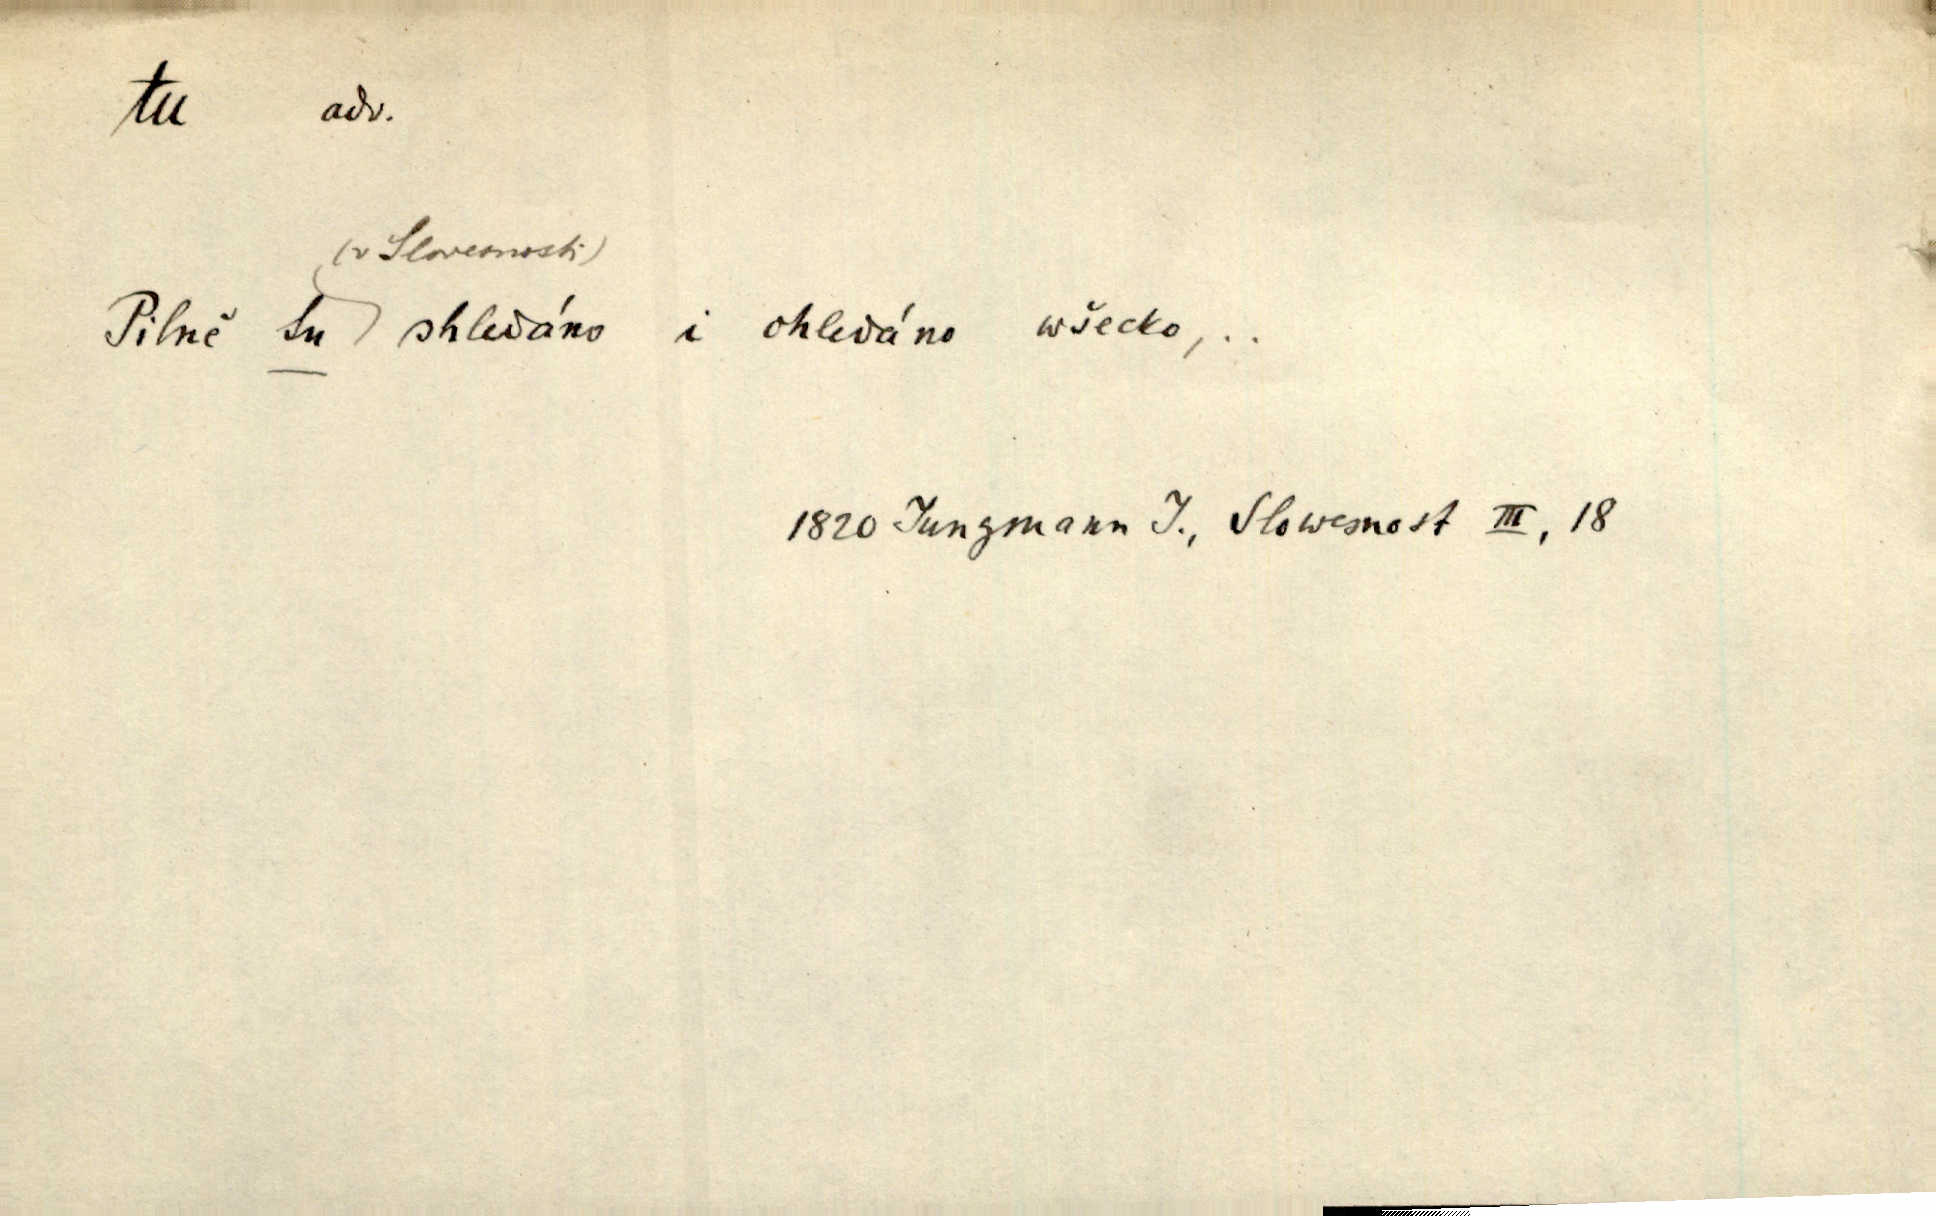 tu adv.
(v Slovesnosti)
Pilně tu shledáno i ohledáno wšecko,..
1820 Jungmann J., Slowesnost III, 18